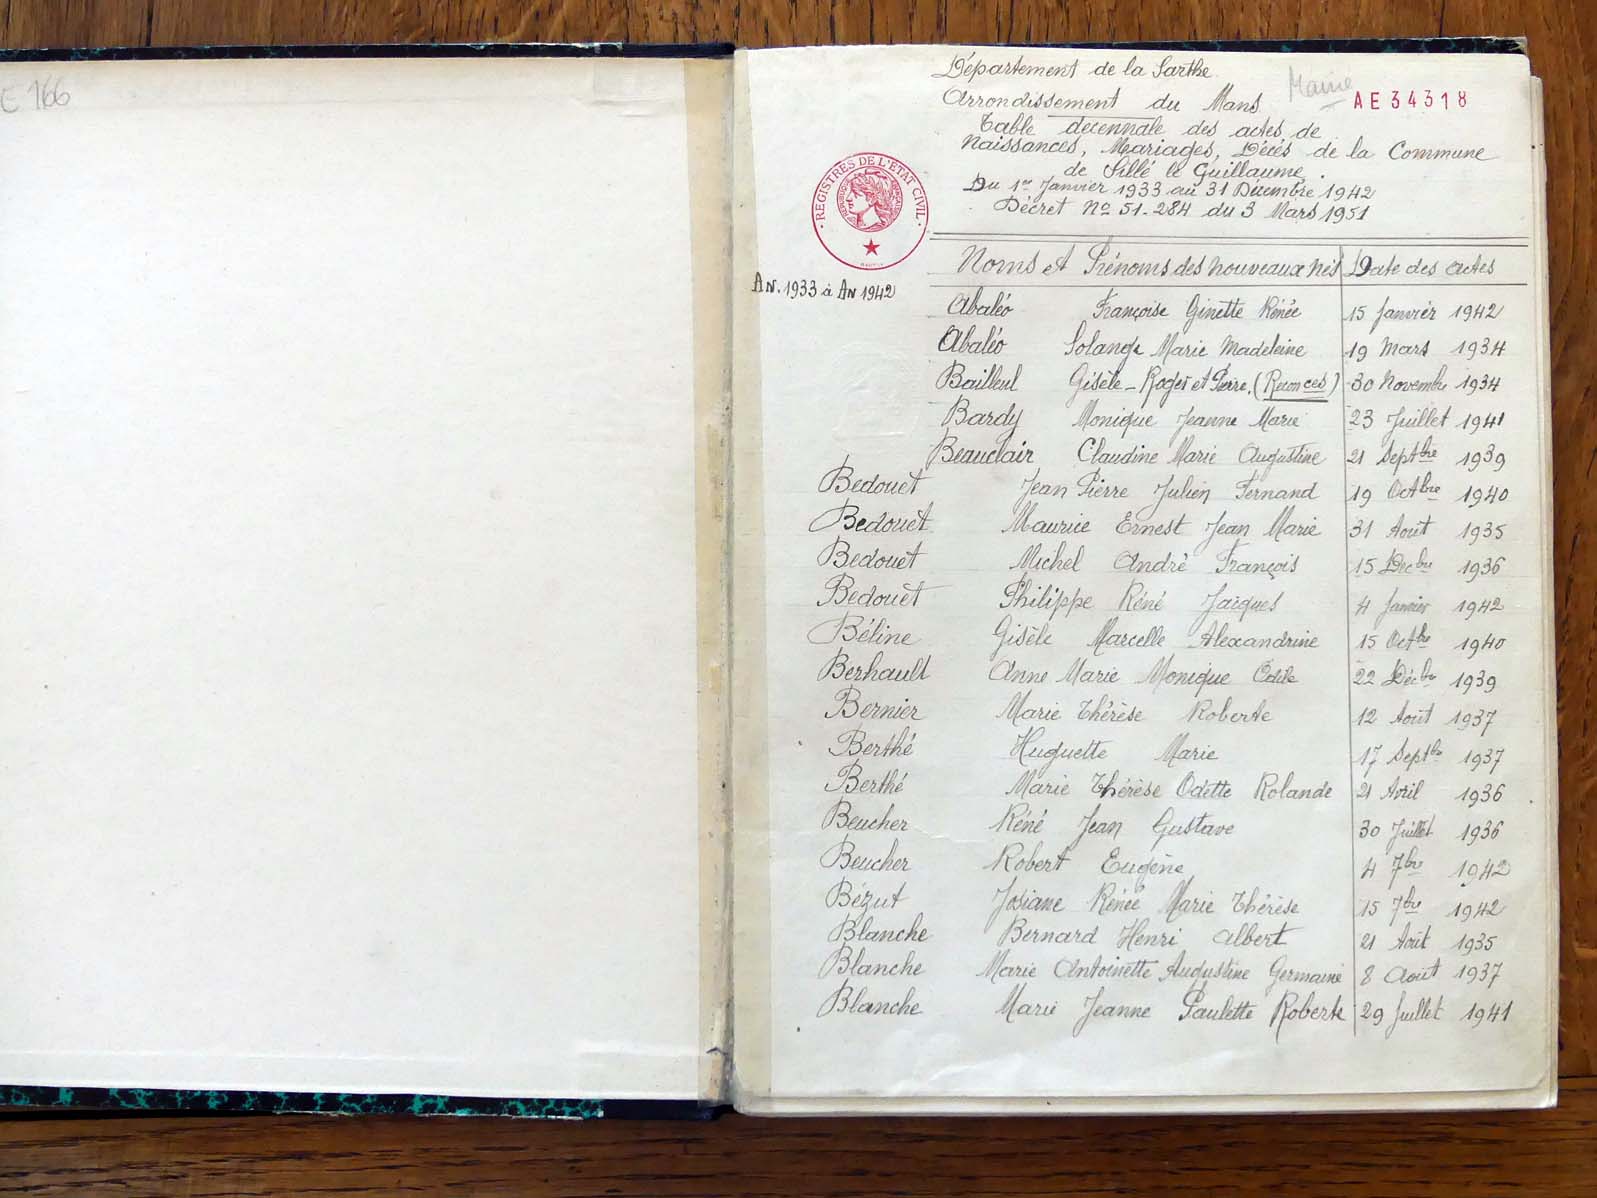 E 166
Département de la Sarthe.
Mairie
Arrondissement du Mans
AE34318
Table decennale des actes de
Naissances, Mariages, Décés de la Commune
de Sillé le Guillaume.
Du 1er Janvier 1933 au 31 Décembre 1942
Décret No 51-284 du 3 Mars 1951
REGISTRES DE L'ÉTAT CIVIL
Noms et Prénoms des nouveaux nés Date des actes
An. 1933 à An 1942
Abaléo Françoise Ginette Rénée 15 Janvier 1942
Abaléo Solange Marie Madeleine 19 Mars 1934
Bailleul Gisèle - Roger et Pierre. 30 Novembre 1934
Bardy Monique Jeanne Marie 23 Juillet 1941
Beauclair Claudine Marie Augustine 21 Septbre 1939
Bedouet Jean Pierre Julien Fernand 19 Octbre 1940
Bedouet Maurice Ernest Jean Marie 31 Août 1935
Bedouet Michel André François 15 Decbre 1936
Bedouet Philippe Réné Jacques 4 Janvier 1942
Béline Gisèle Marcelle Alexandrine 15 Octbre 1940
Berhault Anne Marie Monique Odile 22 Décbre 1939
Bernier Marie Thérèse Roberte 12 Août 1937
Berthé Huguette Marie 17 Septbre 1937
Berthé Marie Thérèse Odette Rolande 21 Avril 1936
Beucher Réné Jean Gustave 30 Juillet 1936
Beucher Robert Eugène 4 7bre 1942
Bézut Josiane Rénée Marie Thérèse 15 7bre 1942
Blanche Bernard Henri Albert 21 Août 1935
Blanche Marie Antoinette Augustine Germaine 8 Août 1937
Blanche Marie Jeanne Paulette Roberte 29 Juillet 1941